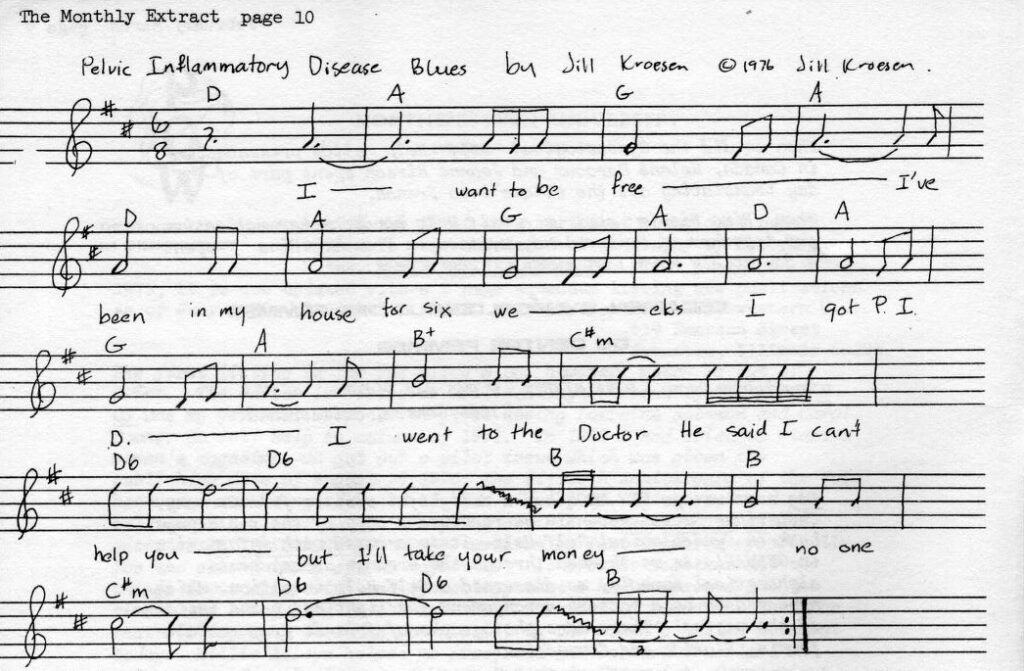 The Monthly Extract page 10
Pelvic Inflammatory Disease Blues by Jill Kroesen © 1976 Jill Kroesen.
D A G A
6
8
I want to be free I've
D A G A D A
been in my house for six we eks I got P. I.
G A B+ C#m
D. I went to the Doctor He said I can't
D6 D6 B B
help you but I'll take your money no one
C#m D6 D6 B
3